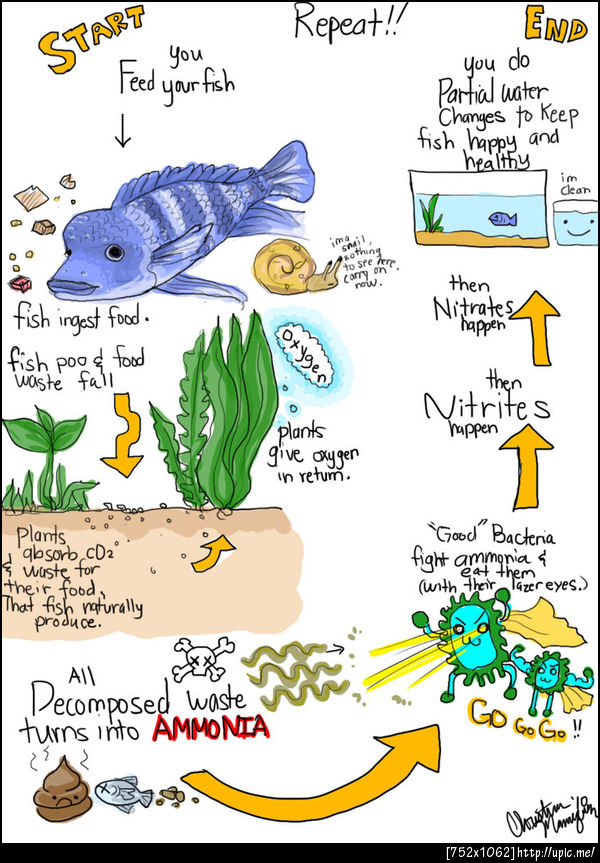 START
you
Feed your fish
Repeat!!
END
fish ingest food.
im a snail,
nothing
to see here.
carry on
now.
fish poo & food
waste fall
Oxygen
plants
give oxygen
in return.
Plants
absorb CO2
& waste for
their food,
That fish naturally
produce.
All
Decomposed waste
turns into AMMONIA
"Good" Bacteria
fight ammonia &
eat them
(with their lazer eyes.)
GO GO GO !!
then
Nitrites
happen
then
Nitrates
happen
you do
Partial water
Changes to keep
fish happy and
healthy
im
clean
[752x1062]http://uplc.me/